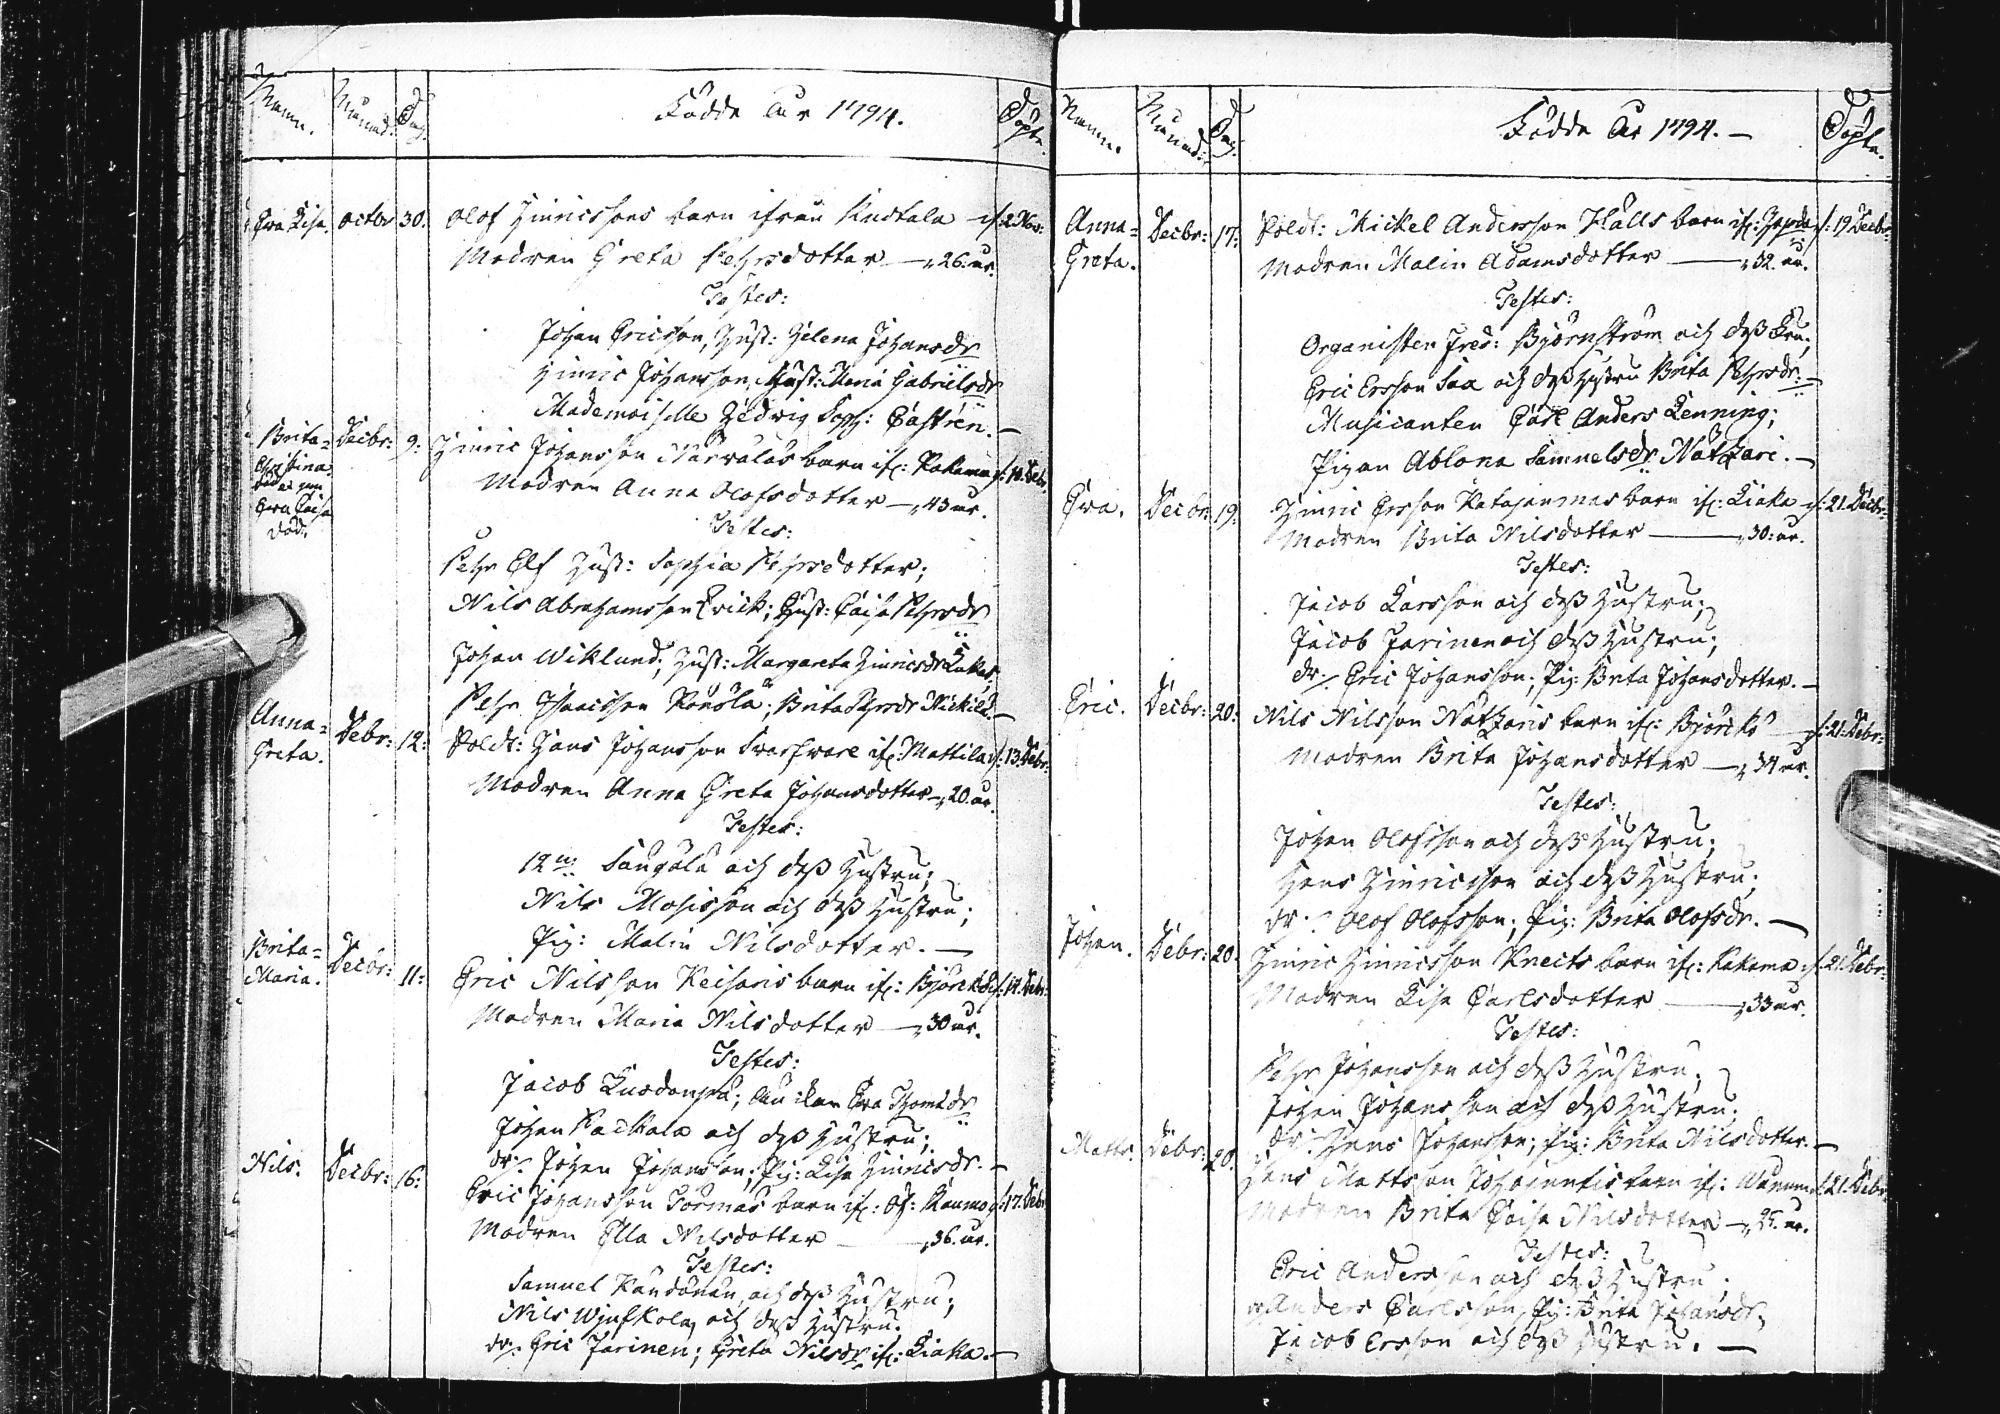 Namn. Månad: Dag. Födde år 1794. Döpte.
Eva Lisa. octobr 30. Olof Hinricssons barn ifrån d. 2 Nov:
Modren Greta Pehrsdotter — 26. år.
Testes:
Johan Ericsson, Hust: Helena Johansdr
Hinric Johansson, Hust: Maria Gabrielsdr
Mademoiselle Hedvig Soph: Castrén. —
Brita= Decbr: 9: Hinric Johansson barn if: Kakama d. 10. Decbr.
Christina
Modren Anna Olofsdotter — 43 år.
Eva Caisa
död.
Testes:
Pehr Elf Hust: Sophia Pehrsdotter;
Nils Abrahamsson Erick; Hust: Caisa Pehrsdr
Johan Wiklund; Hust: Margareta Hinricsdr
Pehr Isaacsson Brita Pehrsdr —
Anna= Debr: 12: Soldt: Hans Johansson if: Mattila d: 13 Debr:
Greta.
Modren Anna Greta Johansdotter — 20. år.
Testes:
12 n: och dess Hustru;
Nils Mosisson och dess Hustru;
Pig: Malin Nilsdotter. —
Brita= Decbr: 11: Eric Nilsson Keisaris barn if: Björkö d: 14. Debr:
Maria.
Modren Maria Nilsdotter — 30 år.
Testes:
Jacob Enkan Eva Thomædr
Johan Packala och dess Hustru;
dr: Johan Johansson; Pig: Lisa Hinricsdr. —
Nils. Decbr: 16: Eric Johansson Tormas barn if: Öf: Raumo d: 17. Debr
Modren Ella Nilsdotter — 36. år.
Testes:
Samuel och dess Hustru;
Nils och dess Hustru.
dr: Eric Jarinen; Greta Nilsdr if: Liaka. —
Namn. Månad: Dag. Födde år 1794. — Döpte.
Anna= Decbr: 17: Soldt: Mickel Andersson Hålls barn if: d: 19 Decbr:
Greta.
Modren Malin Adamsdotter — 32. år.
Testes:
Organisten Fred: Björnström och dess Fru;
Eric Ersson Saa och dess Hustru Brita Pehrsdr: —
Musicanten Carl Anders Lenning;
Pigan Ablona Samuelsdr Nätzari. —
Eva. Decbr: 19: Hinric Ersson Katajanmas barn if: Liaka d: 21. Decbr:
Modren Brita Nilsdotter — 30: år.
Testes:
Jacob Larsson och dess Hustru;
Jacob Jarinen och dess Hustru;
dr: Eric Johansson; Pig: Brita Johansdotter. —
Eric. Decbr: 20: Nils Nilsson Nätzaris barn if: Björkö d: 21: Debr:
Modren Brita Johansdotter — 34 år.
Testes:
Johan Olofsson och dess Hustru;
Hans Hinricsson och dess Hustru;
dr: Olof Olofsson; Pig: Brita Olofsdr. —
Johan. Debr: 20. Hinric Hinricsson Knects barn if: Kakama d: 21. Debr:
Modren Lisa Carlsdotter — 33 år.
Testes:
Pehr Johansson och dess Hustru;
Johan Johansson och dess Hustru;
dr: Hans Johansson; Pig: Brita Nilsdotter. —
Matts. Debr: 20. Hans Mattsson barn if: d: 21. Debr
Modren Brita Caisa Nilsdotter — 25. år.
Testes:
Eric Andersson och dess Hustru;
dr Anders Carlsson, Pig: Brita Johansdr;
Jacob Ersson och dess Hustru. —